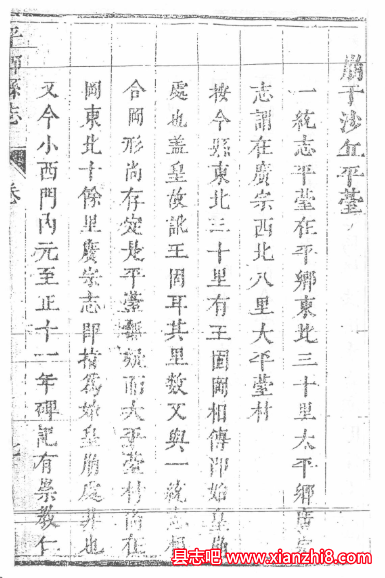 崩于沙丘平臺
一統志平臺在平鄉東北三十里太平鄉廣宗
志謂在廣宗西北八里大平臺村
按今縣東北三十里有王固岡相傳卽始皇崩
處也蓋皇故訛王固耳其里數又與一統志
合岡形尚存定是平臺無疑而大平臺村尚在
岡東北十餘里廣宗志卽指爲始皇崩處非也
又今小西門內元至正十一年碑記有崇教仁
平鄉縣志
卷
县志吧@www.xianzhi8.com